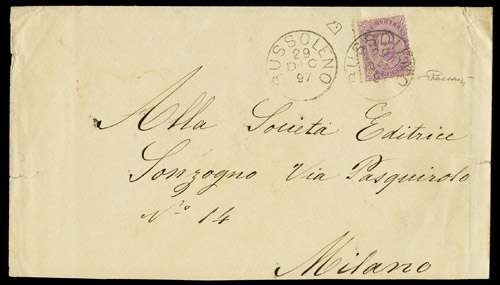 BUSSOLENO
29
DIC
97
Alla Società Editrice
Sonzogno Via Pasquirolo
N° 14
Milano